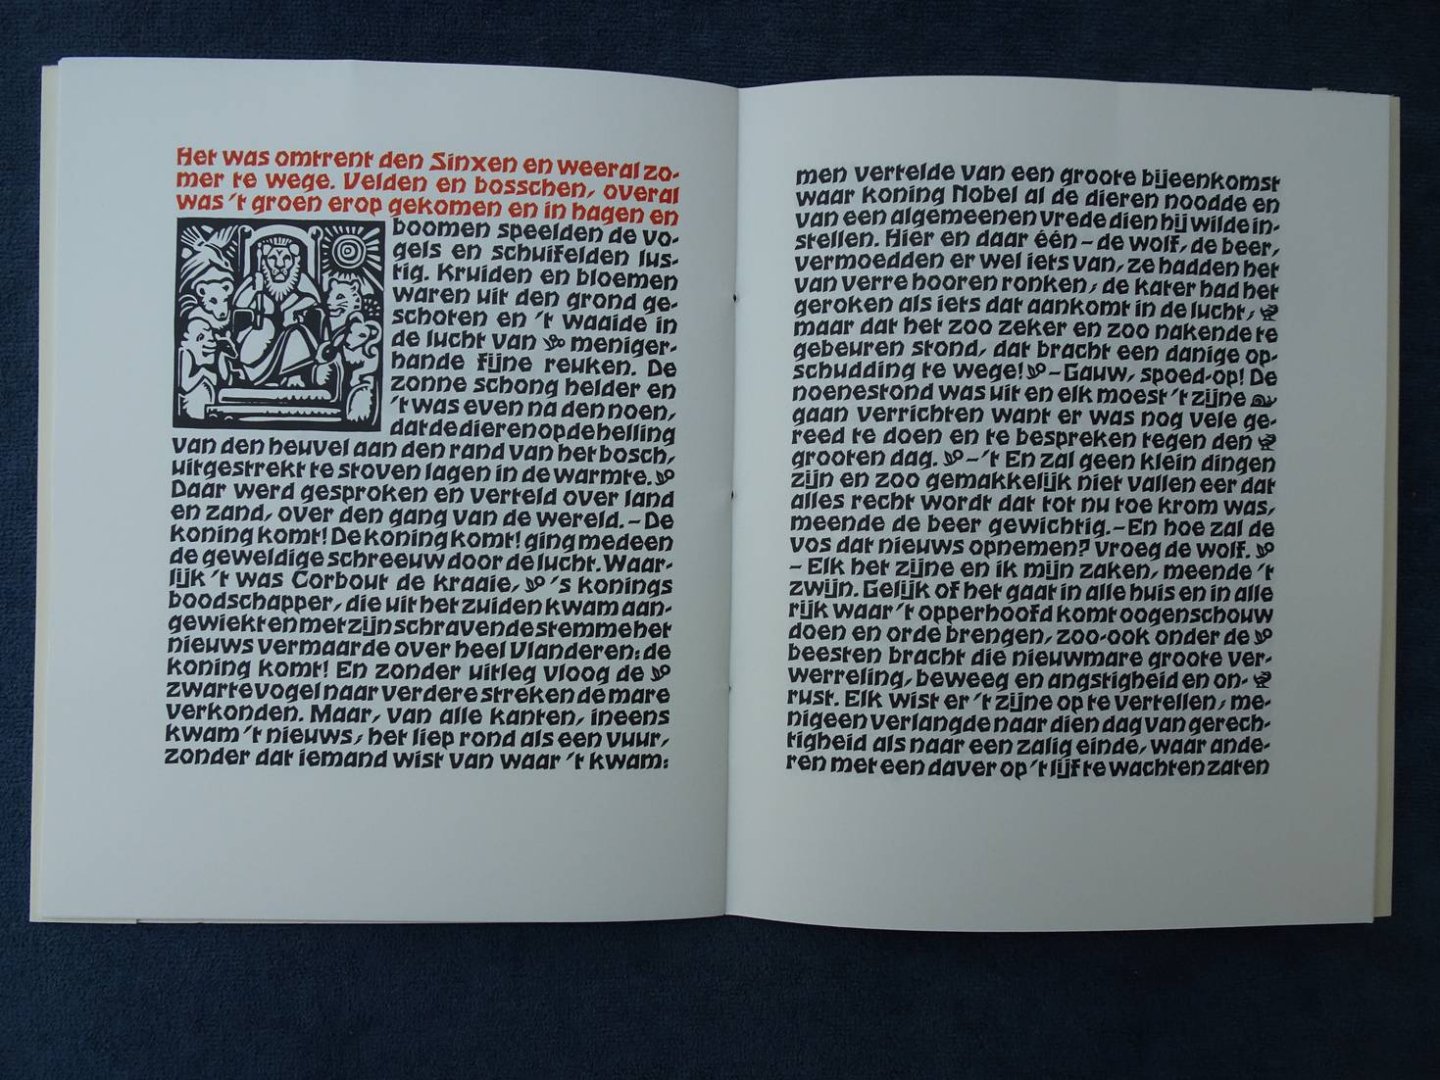 Het was omtrent den Sinxen en weeral zo-
mer te wege. Velden en bosschen, overal
was 't groen erop gekomen en in hagen en
boomen speelden de vo-
gels en schuifelden lus-
tig. Kruiden en bloemen
waren uit den grond ge-
schoten en 't waaide in
de lucht van meniger-
hande fijne reuken. De
zonne schong helder en
't was even na den noen,
dat de dieren op de helling
van den heuvel aan den rand van het bosch,
uitgestrekt te stoven lagen in de warmte.
Daar werd gesproken en verteld over land
en zand, over den gang van de wereld. – De
koning komt! De koning komt! ging medeen
de geweldige schreeuw door de lucht. Waar-
lijk 't was Corbout de kraaie, 's konings
boodschapper, die uit het zuiden kwam aan-
gewiekt en met zijn schravende stemme het
nieuws vermaarde over heel Vlanderen: de
koning komt! En zonder uitleg vloog de
zwarte vogel naar verdere streken de mare
verkonden. Maar, van alle kanten, ineens
kwam 't nieuws, het liep rond als een vuur,
zonder dat iemand wist van waar 't kwam:
men vertelde van een groote bijeenkomst
waar koning Nobel al de dieren noodde en
van een algemeenen vrede dien hij wilde in-
stellen. Hier en daar één – de wolf, de beer,
vermoedden er wel iets van, ze hadden het
van verre hooren ronken, de kater had het
geroken als iets dat aankomt in de lucht,
maar dat het zoo zeker en zoo nakende te
gebeuren stond, dat bracht een danige op-
schudding te wege! – Gauw, spoed-op! De
noenestond was uit en elk moest 't zijne
gaan verrichten want er was nog vele ge-
reed te doen en te bespreken tegen den
grooten dag. – 't En zal geen klein dingen
zijn en zoo gemakkelijk niet vallen eer dat
alles recht wordt dat tot nu toe krom was,
meende de beer gewichtig. – En hoe zal de
vos dat nieuws opnemen? vroeg de wolf.
– Elk het zijne en ik mijn zaken, meende 't
zwijn. Gelijk of het gaat in alle huis en in alle
rijk waar 't opperhoofd komt oogenschouw
doen en orde brengen, zoo-ook onder de
beesten bracht die nieuwmare groote ver-
werreling, beweeg en angstigheid en on-
rust. Elk wist er 't zijne op te vertellen, me-
nigeen verlangde naar dien dag van gerech-
tigheid als naar een zalig einde, waar ande-
ren met een daver op 't lijf te wachten zaten